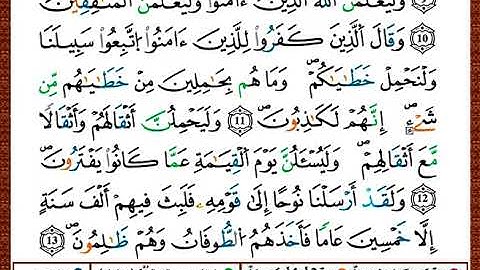 وَلَيَعْلَمَنَّ اَ۬للَّهُ اُ۬لذِينَ ءَامَنُواْ وَلَيَعْلَمَنَّ اَ۬لْمُنَٰفِقِينَۖ
10 وَقَالَ اَ۬لذِينَ كَفَرُواْ لِلذِينَ ءَامَنُواْ اُ۪تَّبِعُواْ سَبِيلَنَا
وَلْنَحْمِلْ خَطَٰيَٰكُمْۖ وَمَا هُم بِحَٰمِلِينَ مِنْ خَطَٰيَٰهُم مِّن
شَےْءٍۖ اِنَّهُمْ لَكَٰذِبُونَۖ 11 وَلَيَحْمِلُنَّ أَثْقَالَهُمْ وَأَثْقَالاٗ
مَّعَ أَثْقَالِهِمْۖ وَلَيُسْـَٔلُنَّ يَوْمَ اَ۬لْقِيَٰمَةِ عَمَّا كَانُواْ يَفْتَرُونَۖ
12 وَلَقَدَ اَرْسَلْنَا نُوحاً اِلَىٰ قَوْمِهِۦ فَلَبِثَ فِيهِمُۥ أَلْفَ سَنَةٍ
اِلَّا خَمْسِينَ عَاماٗ فَأَخَذَهُمُ اُ۬لطُّوفَانُ وَهُمْ ظَٰلِمُونَۖ 13